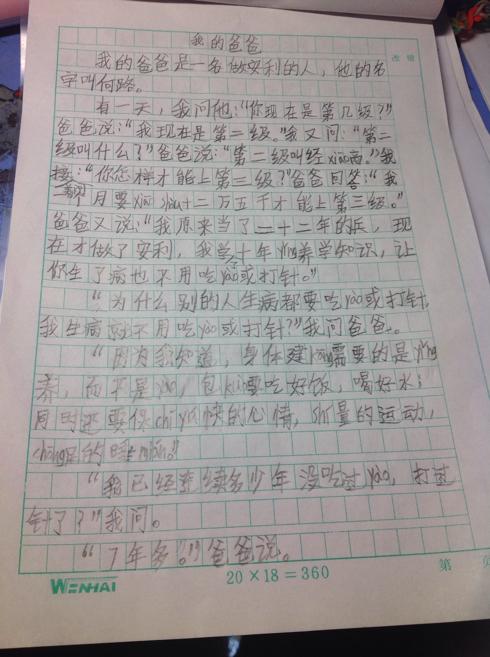 我的爸爸
我的爸爸是一名做安利的人，他的名
字叫何路。
有一天，我问他：“你现在是第几级？”
爸爸说：“我现在是第二级。”我又问：“第二
级叫什么？”爸爸说：“第二级叫经xiāo商。”我
接：“你怎样才能上第三级？”爸爸回答：“我
每个月要xiāo shòu十二万五千才能上第三级。”
爸爸又说：“我原来当了二十二年的兵，现
在才做了安利，我学了十年yíng养学知识，让
你生了病也不用吃yào或打针。”
“为什么别的人生病都要吃yào或打针，
我生病就不用吃yào或打针？”我问爸爸。
“因为我知道，身体建kāng需要的是yíng
养，而不是yào，包kuò要吃好饭，喝好水；
同时还要保chí愉快的心情，例量的运动，
chōng足的睡mián。”
“我已经连续多少年没吃过yào，打过
针了？”我问。
“7年多。”爸爸说。
WENHAI
20×18=360
第 页